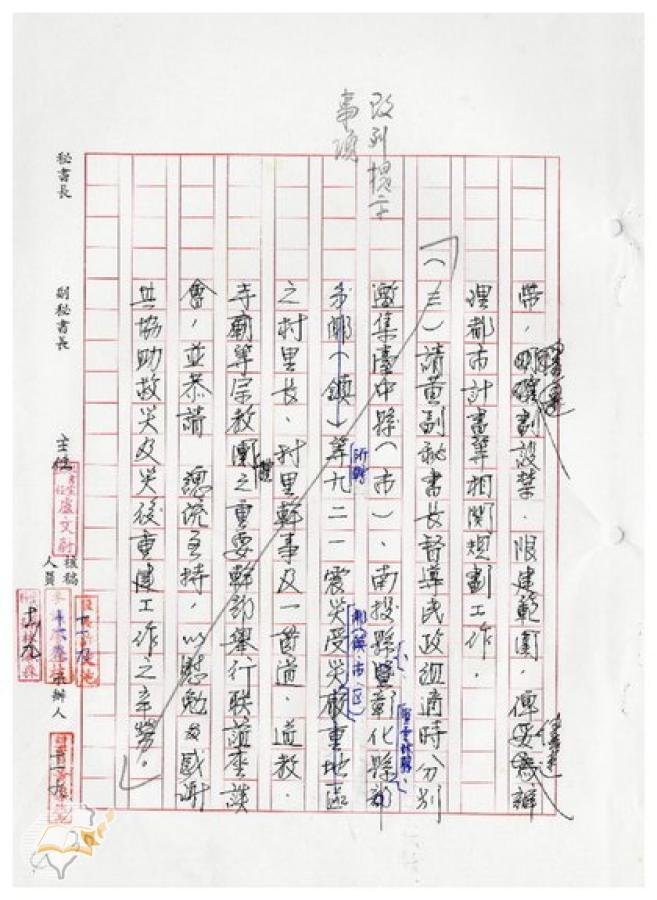 改列提示
事項
帶,明確劃設禁、限建範圍,俾妥為辦
儘速
理都市計畫等相關規劃工作。
(三)請黃副秘書長督導民政廳適時分別
邀集臺中縣(市)、南投縣暨彰化縣部
分鄉(鎮)等九二一震災受災嚴重地區
所轄
鄉(鎮、市、區)
之村里長、村里幹事及一貫道、道教、
寺廟等宗教團體之重要幹部舉行聯誼座談
會,並恭請 總統主持,以慰勉及感謝
共協助救災及災後重建工作之辛勞。
秘書長
副秘書長
主任
盧文尉
核稿
人員
承辦人